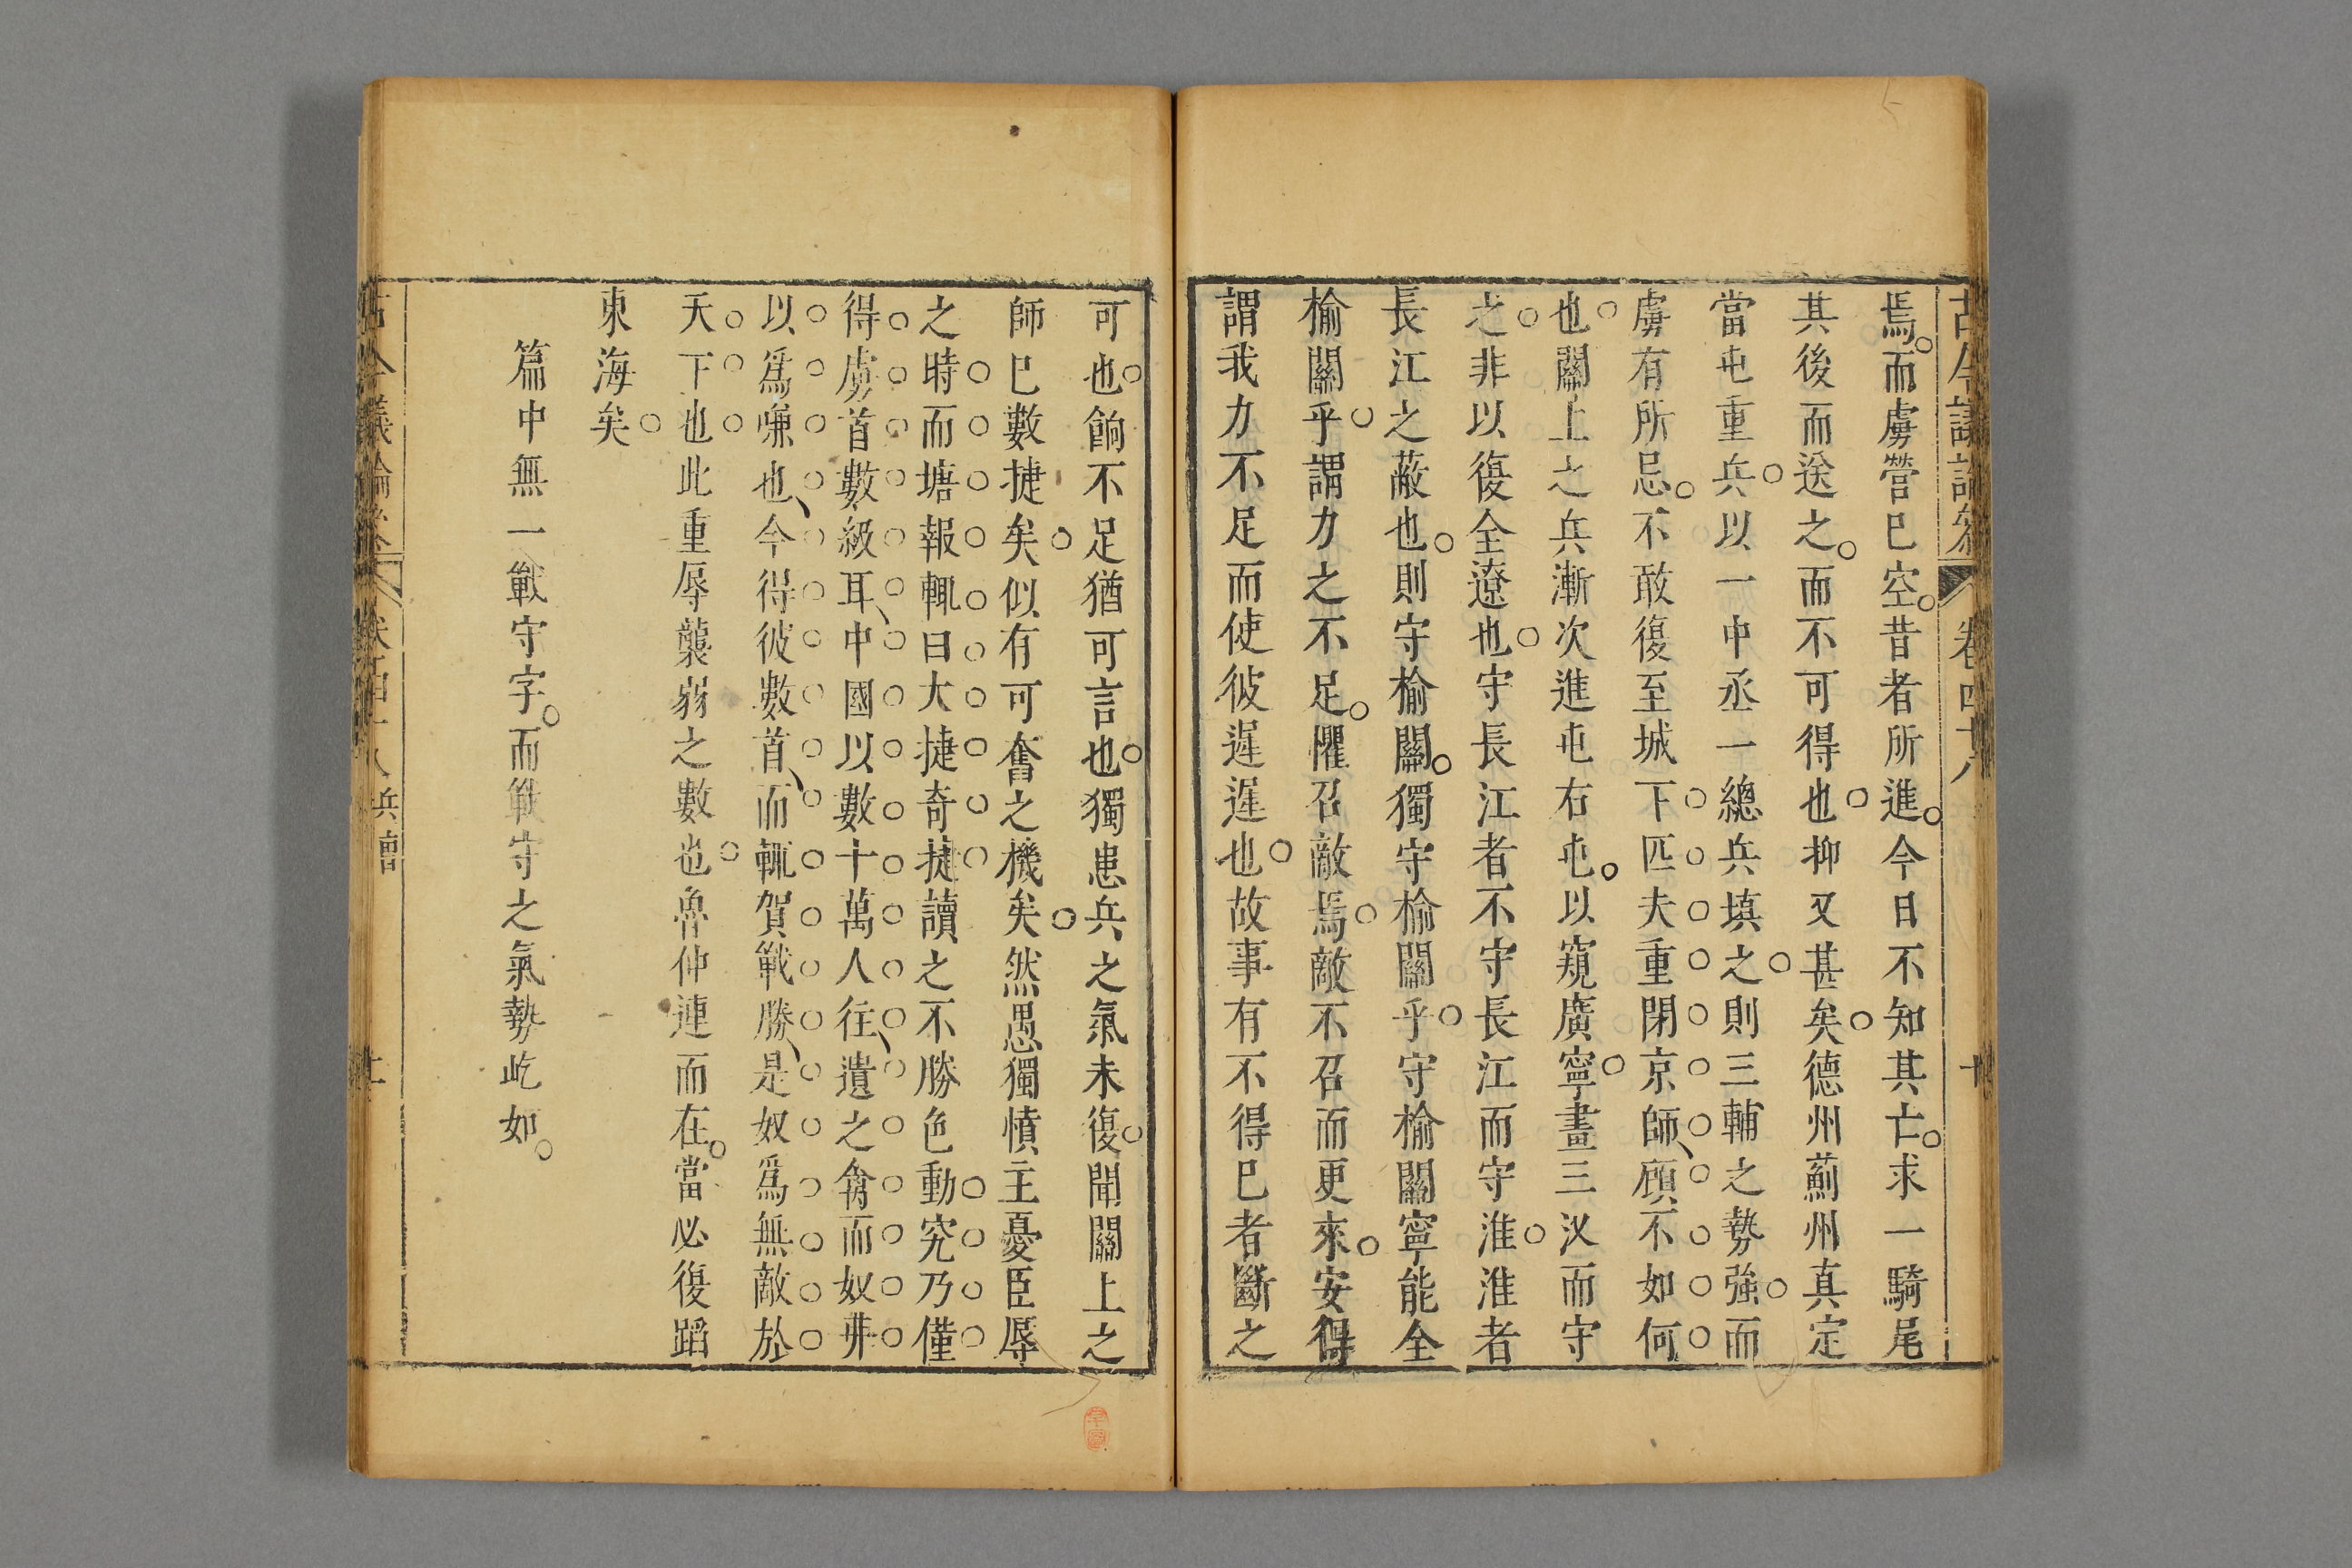 古今議論參 卷四十八 十
焉而虜營巳空昔者所進今日不知其亡求一騎尾
其後而送之而不可得也抑又甚矣德州薊州真定
當屯重兵以一中丞一總兵填之則三輔之勢強而
虜有所忌不敢復至城下匹夫重閉京師顧不如何
也關上之兵漸次進屯右屯以窺廣寧畫三汊而守
之非以復全遼也守長江者不守長江而守淮淮者
長江之蔽也則守榆關獨守榆關乎守榆關寧能全
榆關乎謂力之不足懼召敵焉敵不召而更來安得
謂我力不足而使彼遲遲也故事有不得巳者斷之
可也餉不足猶可言也獨患兵之氣未復聞關上之
師巳數捷矣似有可奮之機矣然愚獨憤主憂臣辱
之時而塘報輒曰大捷奇捷讀之不勝色動究乃僅
得虜首數級耳中國以數十萬人往遺之禽而奴弗
以爲嗛也今得彼數首而輒賀戰勝是奴爲無敵於
天下也此重辱襲弱之數也魯仲連而在當必復蹈
東海矣
篇中無一戰守字而戰守之氣勢屹如
古今議論參 卷四十八 兵會 十一